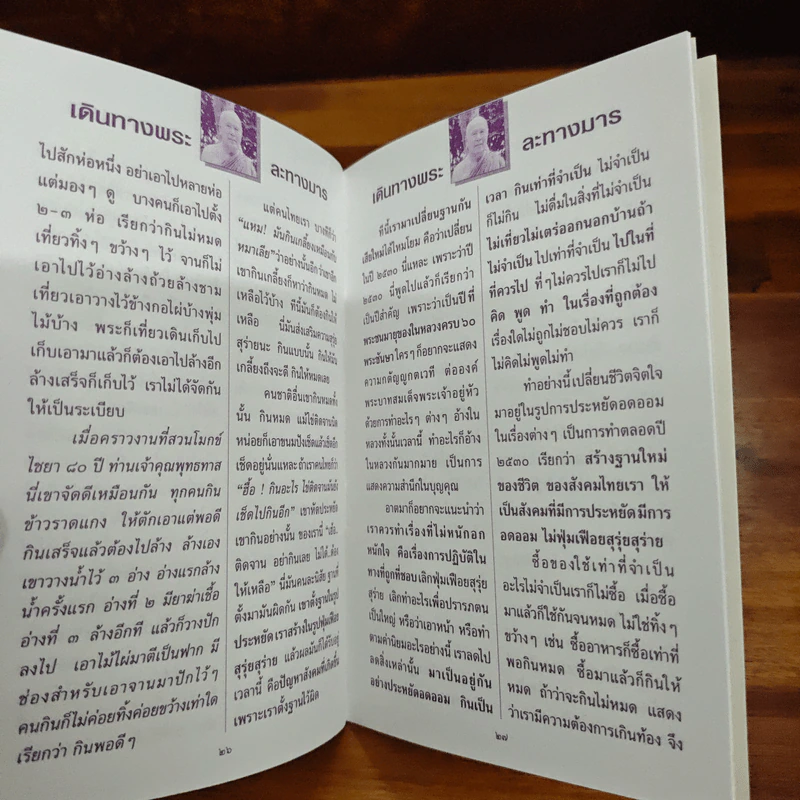 เดินทางพระ
ละทางมาร
ไปสักห่อหนึ่ง อย่าเอาไปหลายห่อ
แต่มองๆ ดู บางคนก็เอาไปตั้ง
๒-๓ ห่อ เรียกว่ากินไม่หมด
เที่ยวทิ้งๆ ขว้างๆ ไว้ จานก็ไม่
เอาไปไว้อ่างล้างถ้วยล้างชาม
เที่ยวเอาวางไว้ข้างกอไผ่บ้างพุ่ม
ไม้บ้าง พระก็เที่ยวเดินเก็บไป
เก็บเอามาแล้วก็ต้องเอาไปล้างอีก
ล้างเสร็จก็เก็บไว้ เราไม่ได้จัดกัน
ให้เป็นระเบียบ
เมื่อคราวงานที่สวนโมกข์
ไชยา ๘๐ ปี ท่านเจ้าคุณพุทธทาส
นี่เขาจัดดีเหมือนกัน ทุกคนกิน
ข้าวราดแกง ให้ตักเอาแต่พอดี
กินเสร็จแล้วต้องไปล้าง ล้างเอง
เขาวางน้ำไว้ ๓ อ่าง อ่างแรกล้าง
น้ำครั้งแรก อ่างที่ ๒ มียาฆ่าเชื้อ
อ่างที่ ๓ ล้างอีกที แล้วก็วางปัก
ลงไป เอาไม้ไผ่มาตีเป็นฟาก มี
ช่องสำหรับเอาจานมาปักไว้ๆ
คนกินก็ไม่ค่อยทิ้งค่อยขว้างเท่าใด
เรียกว่า กินพอดีๆ
แต่คนไทยเรา บางทีก็ว่า
"แหม! มันกินเกลี้ยงเหมือนกับ
หมาเลีย" ว่าอย่างนั้นอีก ว่าเขาอีก
เขากินเกลี้ยงก็หาว่ากินหมด ไม่
เหลือไว้บ้าง ทีนี้มันก็ต้องกินให้
เหลือ นี่มันส่งเสริมความสุรุ่ย
สุร่ายนะ กินแบบนั้น กินให้มัน
เกลี้ยงถึงจะดี กินให้หมดเลย
คนชาติอื่นเขากินหมดทั้ง
นั้น กินหมด แม้ไข่ติดจานนิด
หน่อยก็เอาขนมปังเช็ดแล้วเช็ดอีก
เช็ดอยู่นั่นแหละ ถ้าเราคนไทยก็ว่า
"ฮื้อ! กินอะไร ไข่ติดจานมันยัง
เช็ดไปกินอีก" เขาหัดประหยัด
เขากินอย่างนั้น ของเรานี่
ติดจาน อย่ากินเลย ไม่ได้ ต้อง
ให้เหลือ" นี่มันคนละนิสัย ฐานที่
ตั้งมามันผิดกัน เขาตั้งฐานในรูป
ประหยัด เราสร้างในรูปฟุ่มเฟือย
สุรุ่ยสุร่าย แล้วผลมันก็ได้รับอยู่
เวลานี้ คือปัญหาสังคมที่เกิดขึ้น
เพราะเราตั้งฐานไว้ผิด
๒๖
เดินทางพระ
ละทางมาร
ทีนี้เรามาเปลี่ยนฐานกัน
เสียใหม่ได้ไหมโยม คือว่าเปลี่ยน
ในปี ๒๕๓๐ นี่แหละ เพราะว่าปี
๒๕๓๐ นี่พูดไปแล้วก็เรียกว่า
เป็นปีสำคัญ เพราะว่าเป็นปีที่
พระชนมายุของในหลวงครบ ๖๐
พระชันษา ใครๆ ก็อยากจะแสดง
ความกตัญญูกตเวที ต่อองค์
พระบาทสมเด็จพระเจ้าอยู่หัว
ด้วยการทำอะไรๆ ต่างๆ อ้างใน
หลวงทั้งนั้นเวลานี้ ทำอะไรก็อ้าง
ในหลวงกันมากมาย เป็นการ
แสดงความสำนึกในบุญคุณ
อาตมาก็อยากจะแนะนำว่า
เราควรทำเรื่องที่ไม่หนักอก
หนักใจ คือเรื่องการปฏิบัติใน
ทางที่ถูกที่ชอบ เลิกฟุ่มเฟือยสุรุ่ย
สุร่าย เลิกทำอะไรเพื่อปรารภตน
เป็นใหญ่ หรือว่าเอาหน้า หรือทำ
ตามค่านิยมอะไรอย่างนี้ เราลดไป
ลดสิ่งเหล่านั้น มาเป็นอยู่กัน
อย่างประหยัดอดออม กินเป็น
เวลา กินเท่าที่จำเป็น ไม่จำเป็น
ก็ไม่กิน ไม่ดื่มในสิ่งที่ไม่จำเป็น
ไม่เที่ยวไม่เตร่ออกนอกบ้านถ้า
ไม่จำเป็น ไปเท่าที่จำเป็น ไปในที่
ที่ควรไป ที่ๆ ไม่ควรไปเราก็ไม่ไป
คิด พูด ทำ ในเรื่องที่ถูกต้อง
เรื่องใดไม่ถูกไม่ชอบไม่ควร เราก็
ไม่คิดไม่พูดไม่ทำ
ทำอย่างนี้เปลี่ยนชีวิตจิตใจ
มาอยู่ในรูปการประหยัดอดออม
ในเรื่องต่างๆ เป็นการทำตลอดปี
๒๕๓๐ เรียกว่า สร้างฐานใหม่
ของชีวิต ของสังคมไทยเรา ให้
เป็นสังคมที่มีการประหยัด มีการ
อดออม ไม่ฟุ่มเฟือยสุรุ่ยสุร่าย
ซื้อของใช้เท่าที่จำเป็น
อะไรไม่จำเป็นเราก็ไม่ซื้อ เมื่อซื้อ
มาแล้วก็ใช้กันจนหมด ไม่ใช่ทิ้งๆ
ขว้างๆ เช่น ซื้ออาหารก็ซื้อเท่าที่
พอกินหมด ซื้อมาแล้วก็กินให้
หมด ถ้าว่าจะกินไม่หมด แสดง
ว่าเรามีความต้องการเกินท้อง จึง
๒๗